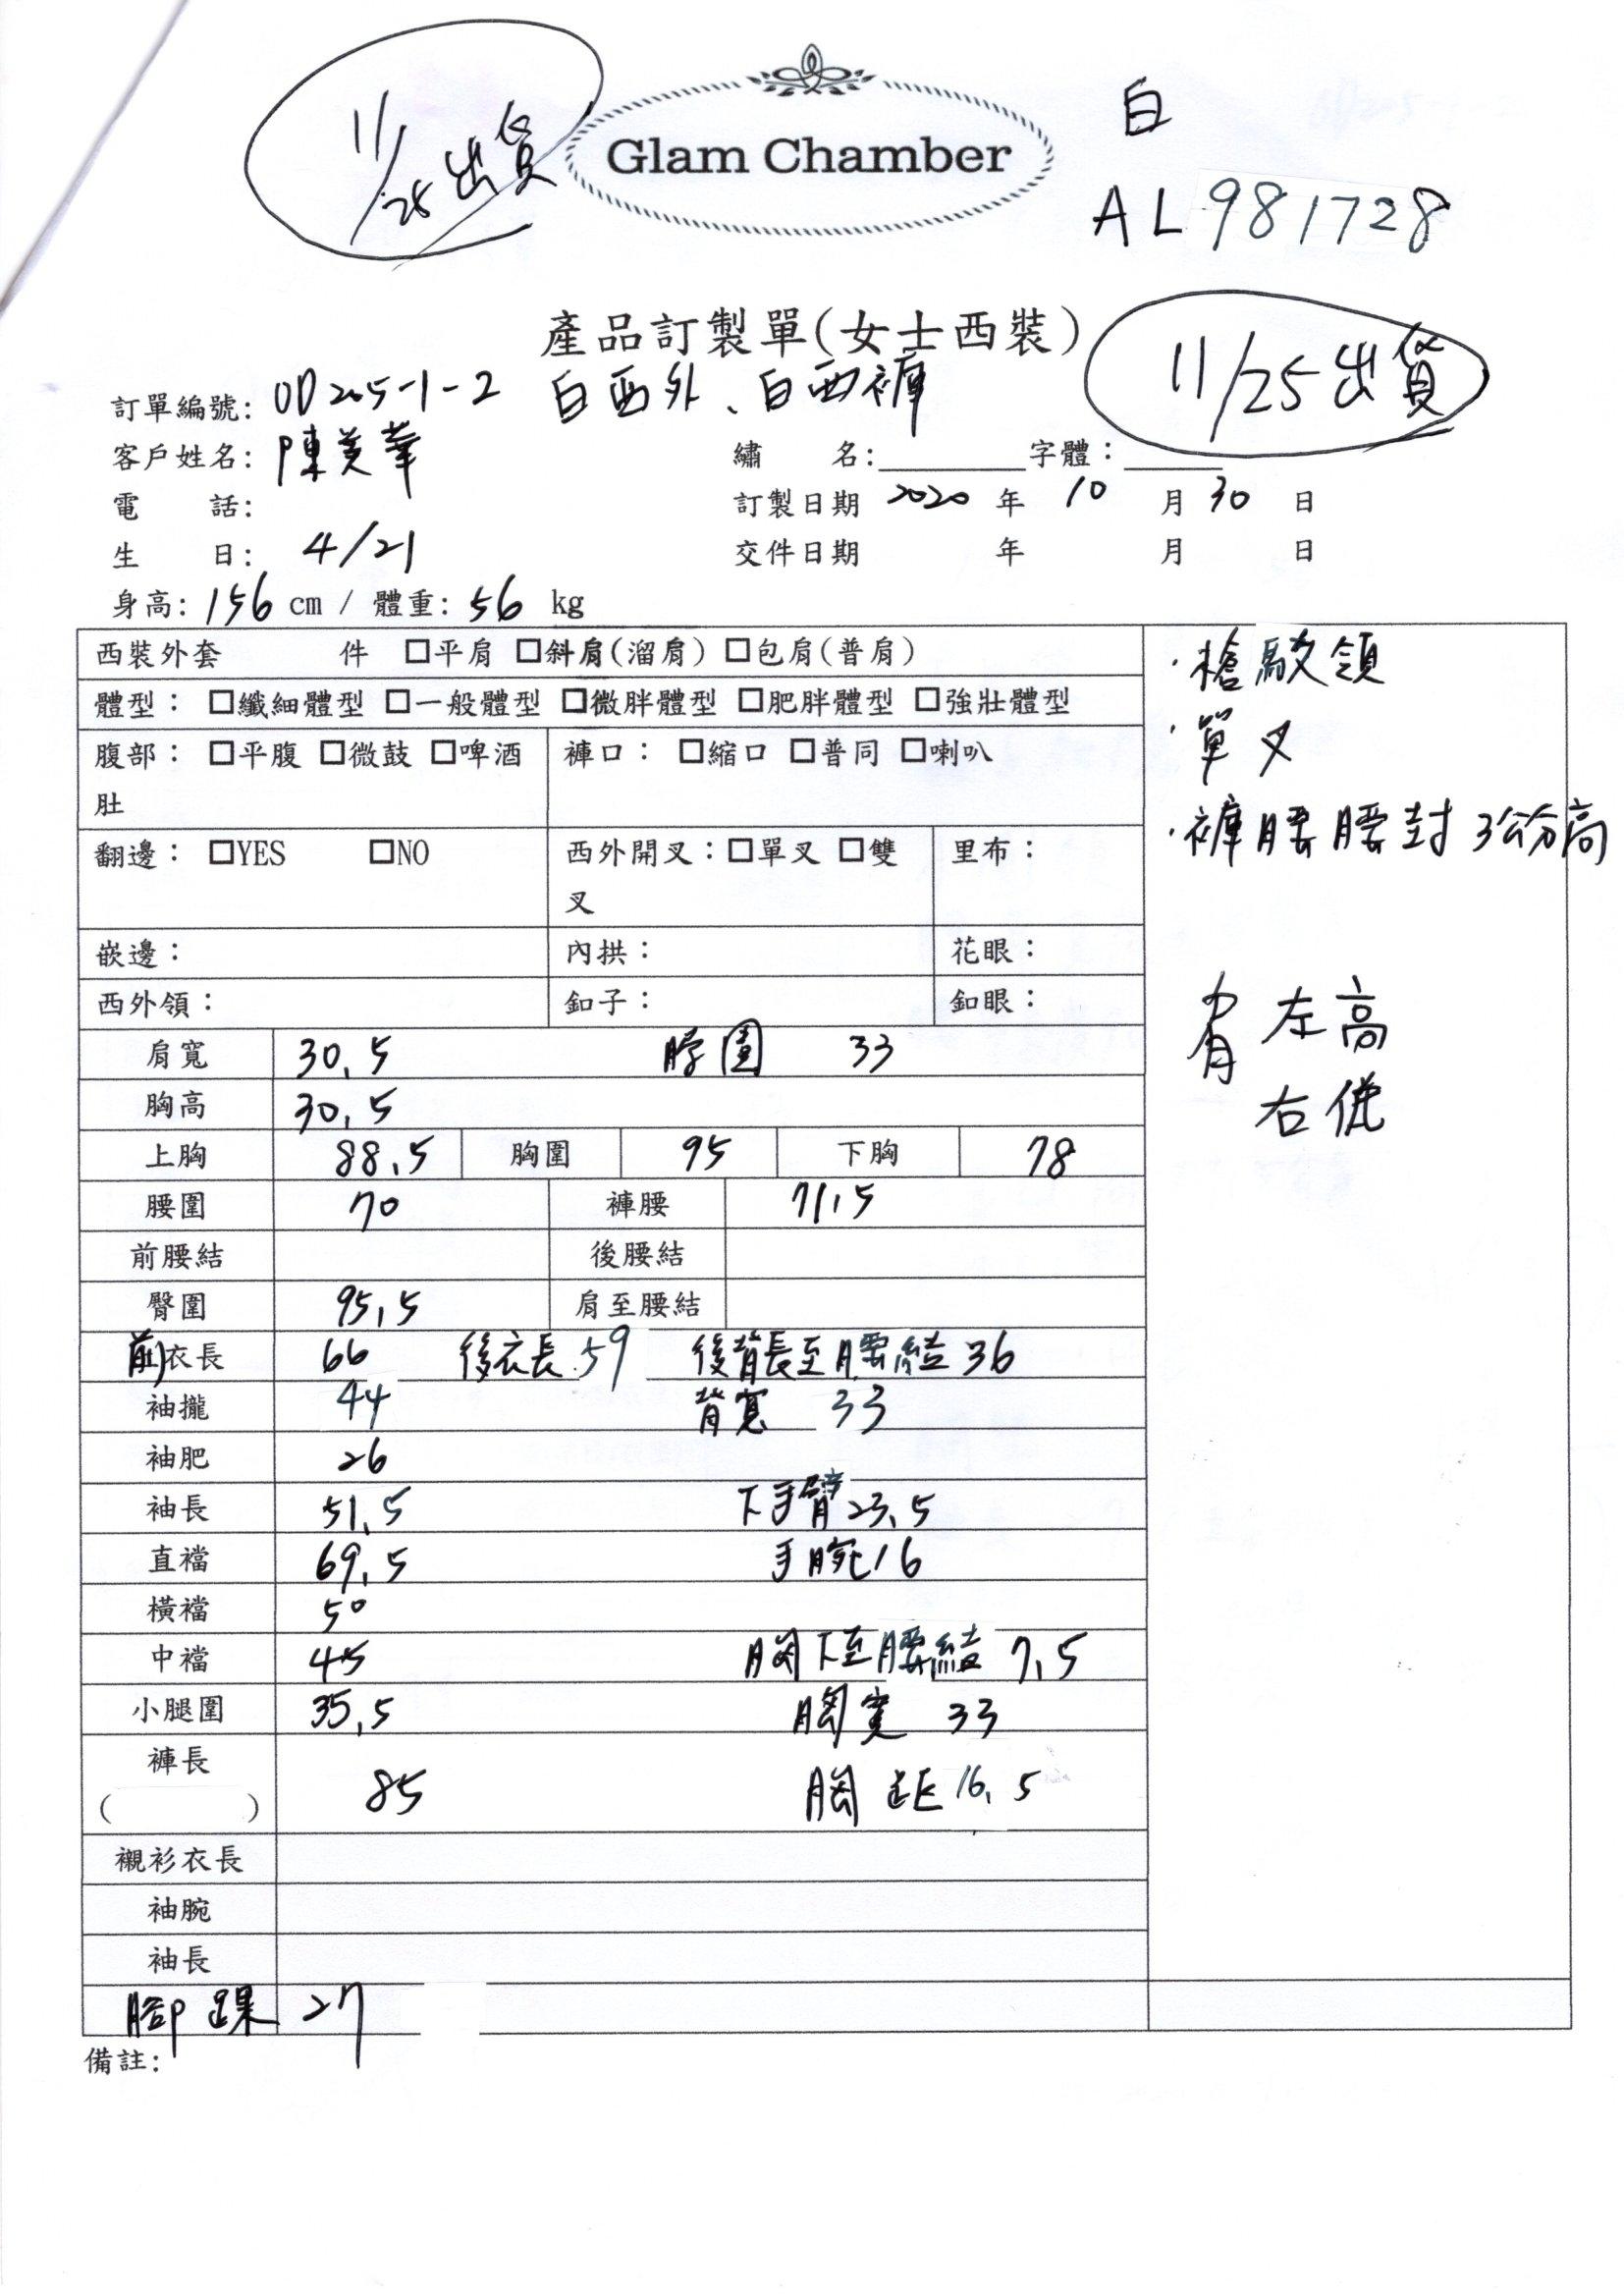 11/25出貨
Glam Chamber
白
AL 981728
產品訂製單(女士西裝)
11/25出貨
訂單編號: OD205-1-2 白西外、白西褲
客戶姓名: 陳美華
繡 名: 字體：
電 話:
訂製日期 2020 年 10 月 30 日
生 日: 4/21
交件日期 年 月 日
身高: 156 cm / 體重: 56 kg
西裝外套 件 □平肩 □斜肩(溜肩) □包肩(普肩)
體型： □纖細體型 □一般體型 □微胖體型 □肥胖體型 □強壯體型
腹部： □平腹 □微鼓 □啤酒
肚
褲口： □縮口 □普同 □喇叭
翻邊： □YES □NO
西外開叉：□單叉 □雙
叉
里布：
嵌邊：
內拱：
花眼：
西外領：
釦子：
釦眼：
肩寬 30.5 脖圍 33
胸高 30.5
上胸 88.5 胸圍 95 下胸 78
腰圍 70 褲腰 71.5
前腰結 後腰結
臀圍 95.5 肩至腰結
前衣長 66 後衣長 59 後背長至腰結 36
袖攏 44 背寬 33
袖肥 26
袖長 51.5 下手臂 23.5
直襠 69.5 手腕 16
橫襠 50
中襠 45 胸下至腰結 7.5
小腿圍 35.5 胸寬 33
褲長
( ) 85 胸距 16.5
襯衫衣長
袖腕
袖長
腳踝 27
備註:
·槍駁領
·單叉
·褲腰腰封3公分高
肩 左高
右低